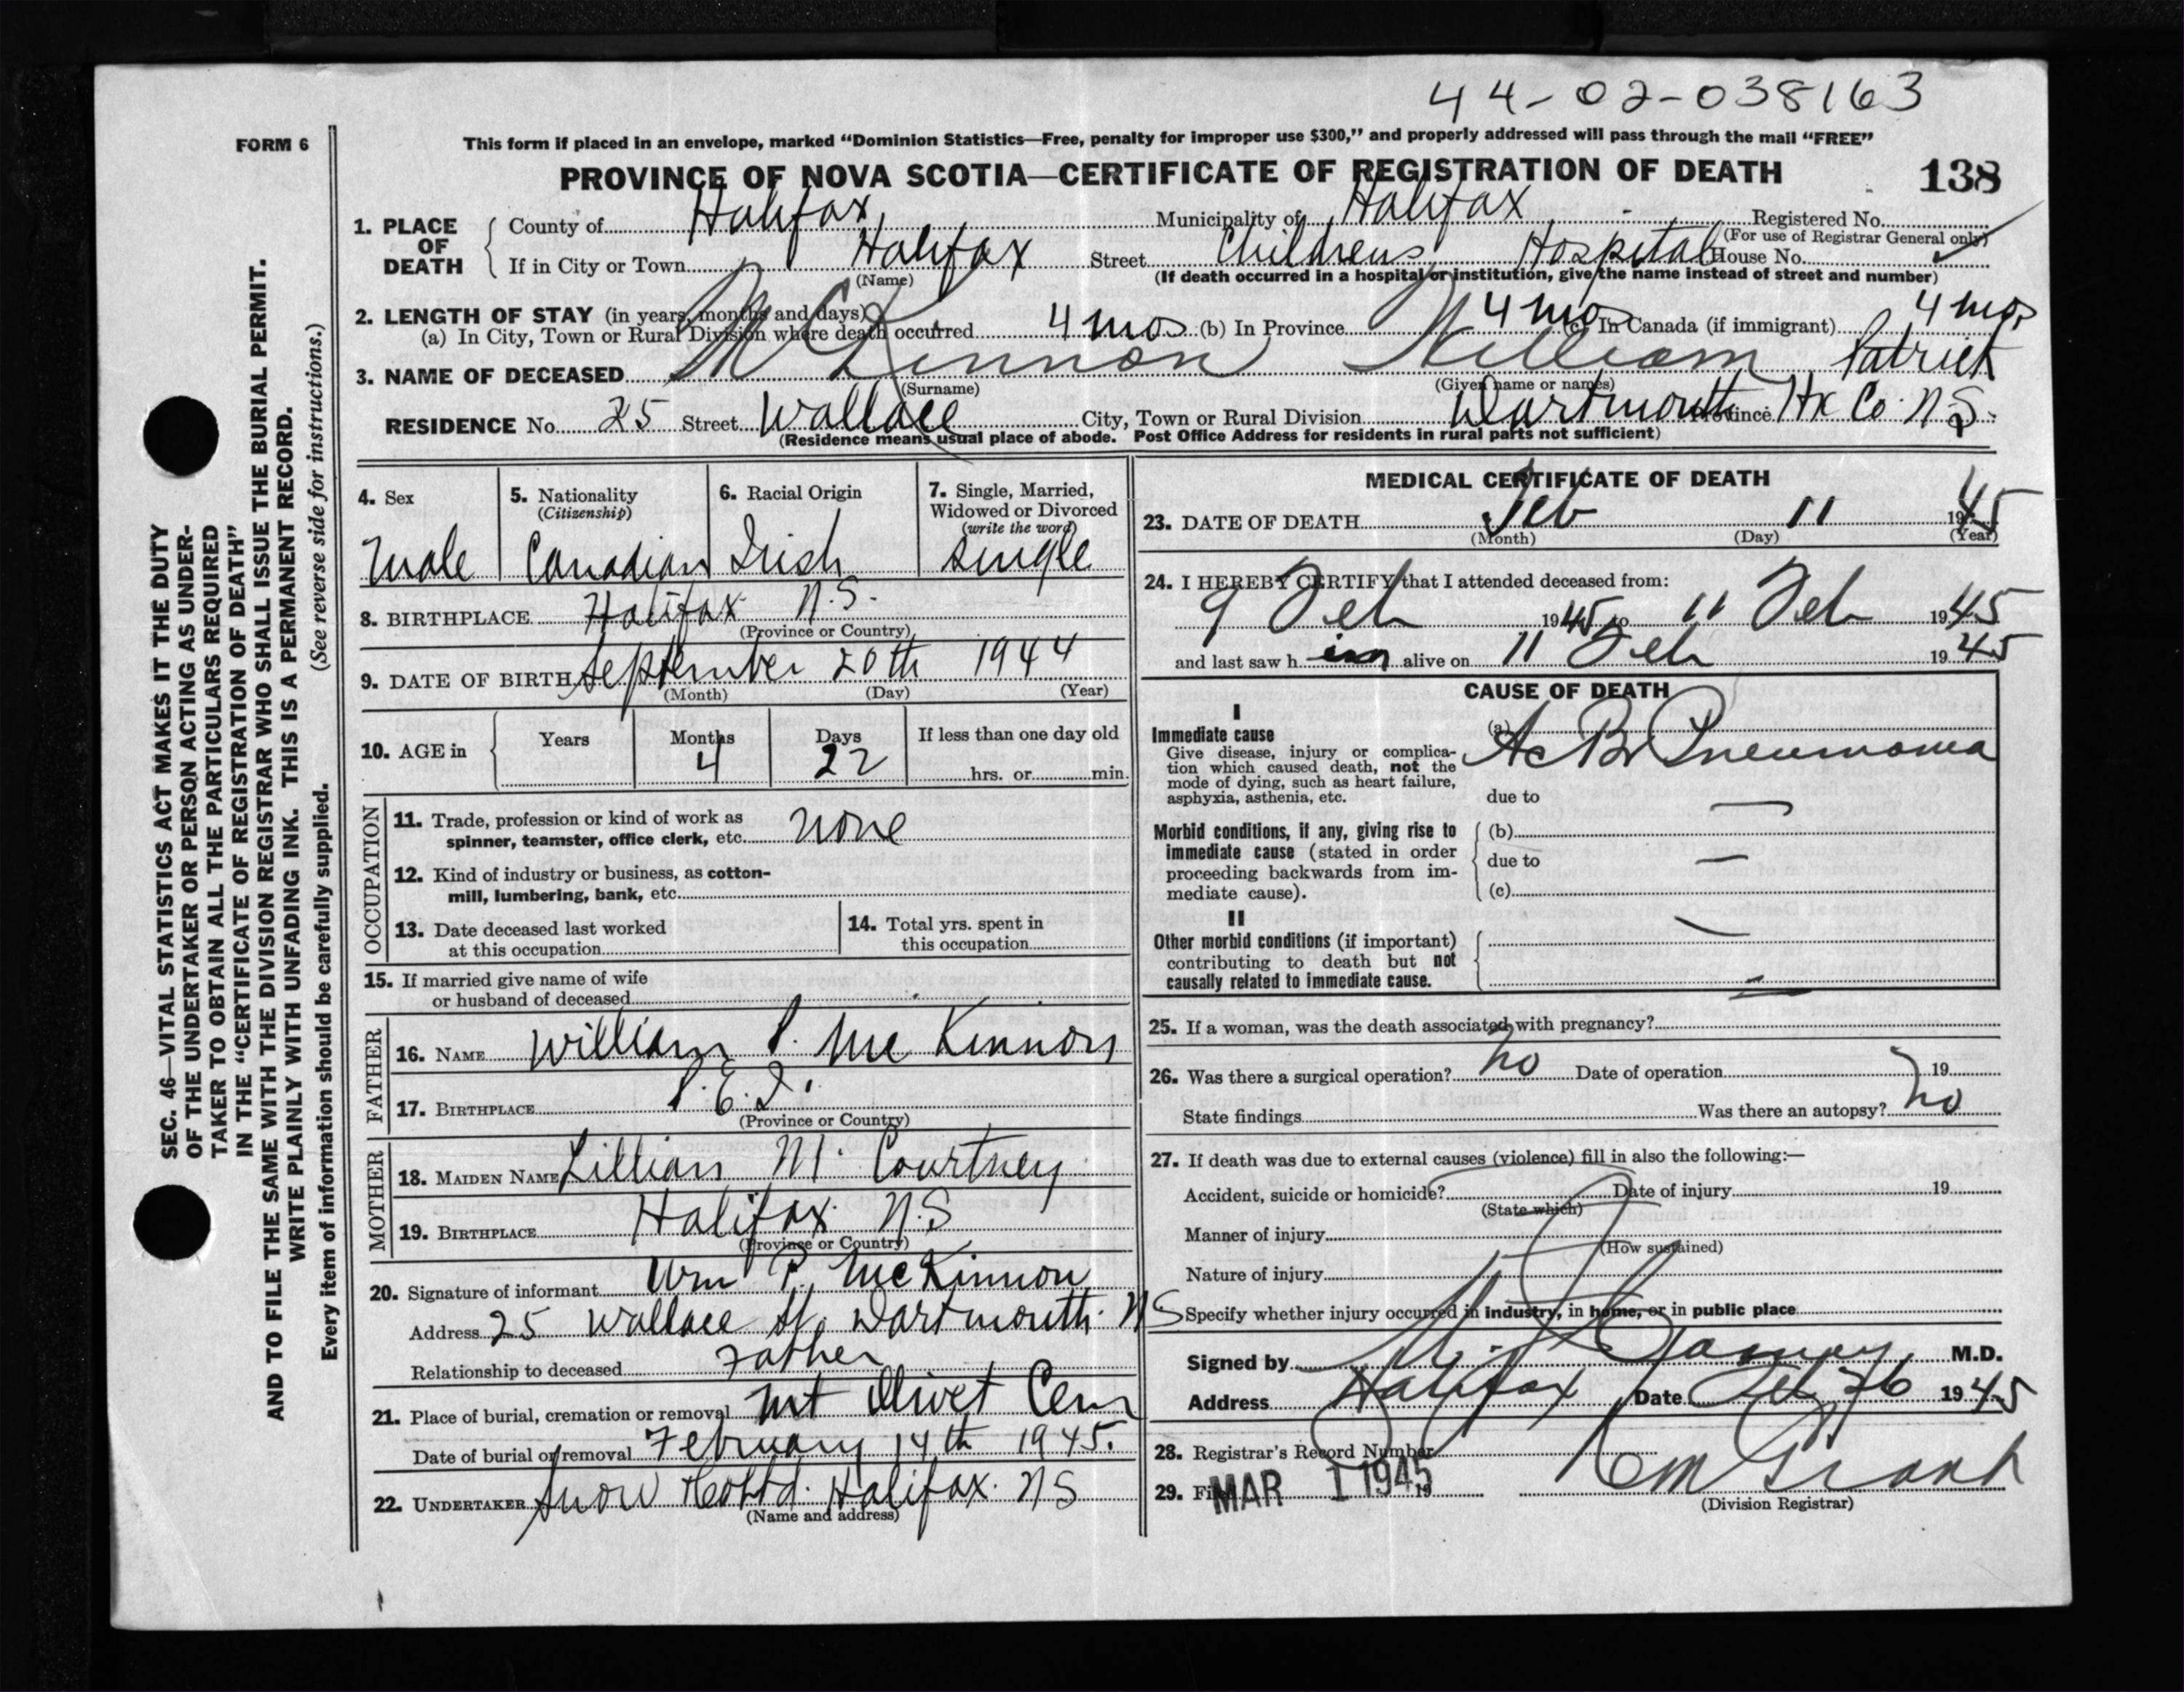 44-02-038163
FORM 6
This form if placed in an envelope, marked "Dominion Statistics—Free, penalty for improper use $300," and properly addressed will pass through the mail "FREE"
PROVINCE OF NOVA SCOTIA—CERTIFICATE OF REGISTRATION OF DEATH 138
1. PLACE OF DEATH County of Halifax Municipality of Halifax Registered No.
(For use of Registrar General only)
If in City or Town Halifax Street Childrens Hospital House No.
(Name) (If death occurred in a hospital or institution, give the name instead of street and number)
2. LENGTH OF STAY (in years, months and days)
(a) In City, Town or Rural Division where death occurred 4 mos (b) In Province 4 mos (c) In Canada (if immigrant) 4 mos
3. NAME OF DECEASED McKinnon William Patrick
(Surname) (Given name or names)
RESIDENCE No. 25 Street Wallace City, Town or Rural Division Dartmouth Province Hx Co N.S.
(Residence means usual place of abode. Post Office Address for residents in rural parts not sufficient)
4. Sex 5. Nationality (Citizenship) 6. Racial Origin 7. Single, Married, Widowed or Divorced (write the word)
Male Canadian Irish Single
8. BIRTHPLACE Halifax N.S.
(Province or Country)
9. DATE OF BIRTH September 20th 1944
(Month) (Day) (Year)
10. AGE in Years Months Days If less than one day old
4 22 hrs. or min.
OCCUPATION
11. Trade, profession or kind of work as spinner, teamster, office clerk, etc. none
12. Kind of industry or business, as cotton-mill, lumbering, bank, etc.
13. Date deceased last worked at this occupation
14. Total yrs. spent in this occupation
15. If married give name of wife or husband of deceased
FATHER
16. NAME William P. McKinnon
17. BIRTHPLACE P.E.I.
(Province or Country)
MOTHER
18. MAIDEN NAME Lillian M. Courtney
19. BIRTHPLACE Halifax N.S
(Province or Country)
20. Signature of informant Wm P. McKinnon
Address 25 Wallace St. Dartmouth NS
Relationship to deceased Father
21. Place of burial, cremation or removal Mt Olivet Cem
Date of burial or removal February 14th 1945.
22. UNDERTAKER Snow Co Ltd. Halifax. NS
(Name and address)
MEDICAL CERTIFICATE OF DEATH
23. DATE OF DEATH Feb 11 1945
(Month) (Day) (Year)
24. I HEREBY CERTIFY that I attended deceased from:
9 Feb 1945 to 11 Feb 1945
and last saw him alive on 11 Feb 1945
CAUSE OF DEATH
I
Immediate cause
Give disease, injury or complication which caused death, not the mode of dying, such as heart failure, asphyxia, asthenia, etc.
(a) Ac Br Pneumonia
due to —
Morbid conditions, if any, giving rise to immediate cause (stated in order proceeding backwards from immediate cause).
(b)
due to —
(c)
II
Other morbid conditions (if important) contributing to death but not causally related to immediate cause.
25. If a woman, was the death associated with pregnancy?
26. Was there a surgical operation? no Date of operation 19
State findings Was there an autopsy? no
27. If death was due to external causes (violence) fill in also the following:—
Accident, suicide or homicide? Date of injury 19
(State which)
Manner of injury
(How sustained)
Nature of injury
Specify whether injury occurred in industry, in home, or in public place
Signed by M.D.
Address Halifax Date Feb 26 1945
28. Registrar's Record Number
29. MAR 1 1945 19
(Division Registrar)
SEC. 46—VITAL STATISTICS ACT MAKES IT THE DUTY
OF THE UNDERTAKER OR PERSON ACTING AS UNDER-
TAKER TO OBTAIN ALL THE PARTICULARS REQUIRED
IN THE "CERTIFICATE OF REGISTRATION OF DEATH"
AND TO FILE THE SAME WITH THE DIVISION REGISTRAR WHO SHALL ISSUE THE BURIAL PERMIT.
WRITE PLAINLY WITH UNFADING INK. THIS IS A PERMANENT RECORD.
Every item of information should be carefully supplied. (See reverse side for instructions.)